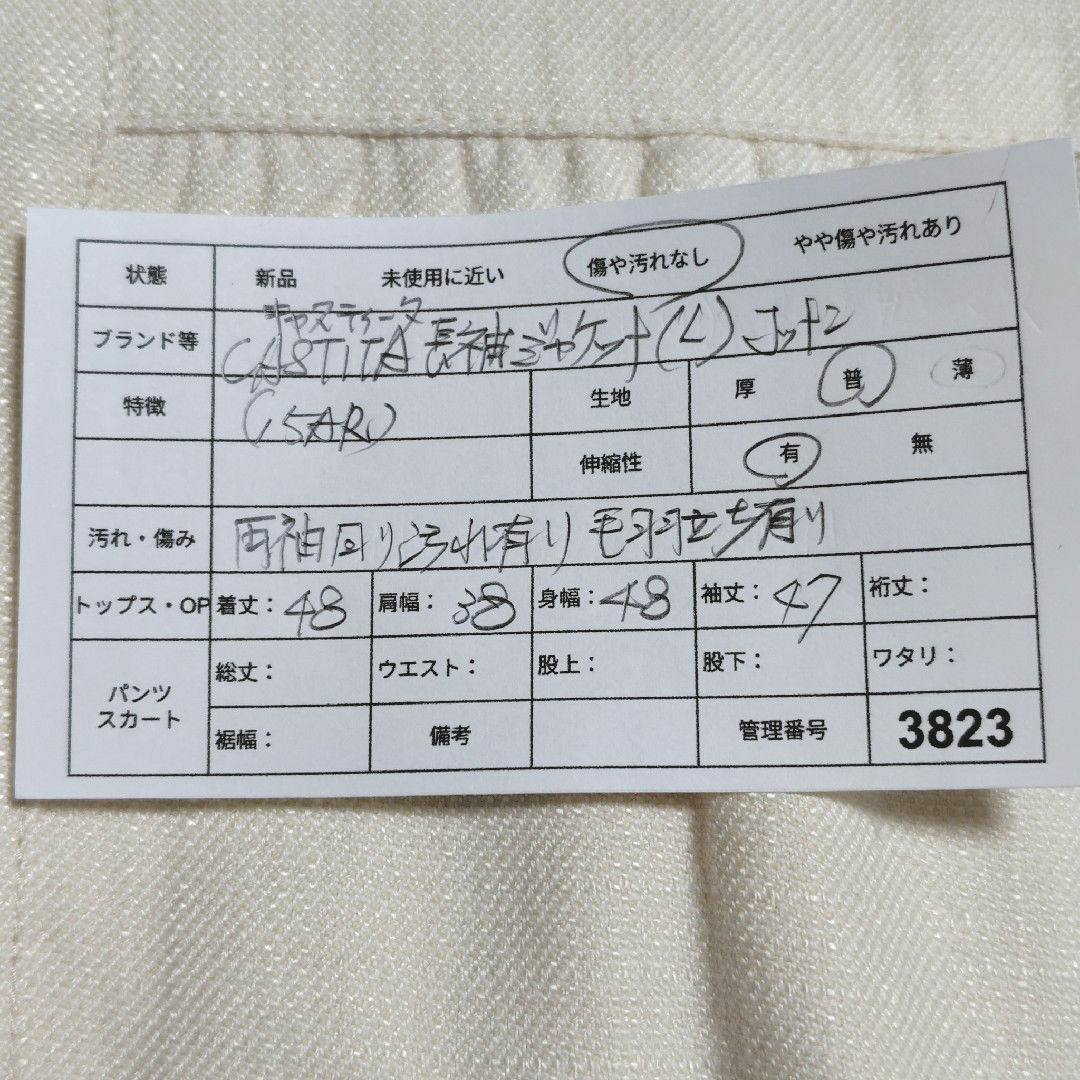 状態 新品 未使用に近い 傷や汚れなし やや傷や汚れあり
キャスティータ
ブランド等 CASTITA 長袖ジャケット(L) コットン
特徴 (5AR) 生地 厚 普 薄
伸縮性 有 無
汚れ・傷み 両袖回り汚れ有り 毛羽立ち有り
トップス・OP 着丈：48 肩幅：38 身幅：48 袖丈：47 裄丈：
パンツ
スカート
総丈： ウエスト： 股上： 股下： ワタリ：
裾幅： 備考 管理番号 3823